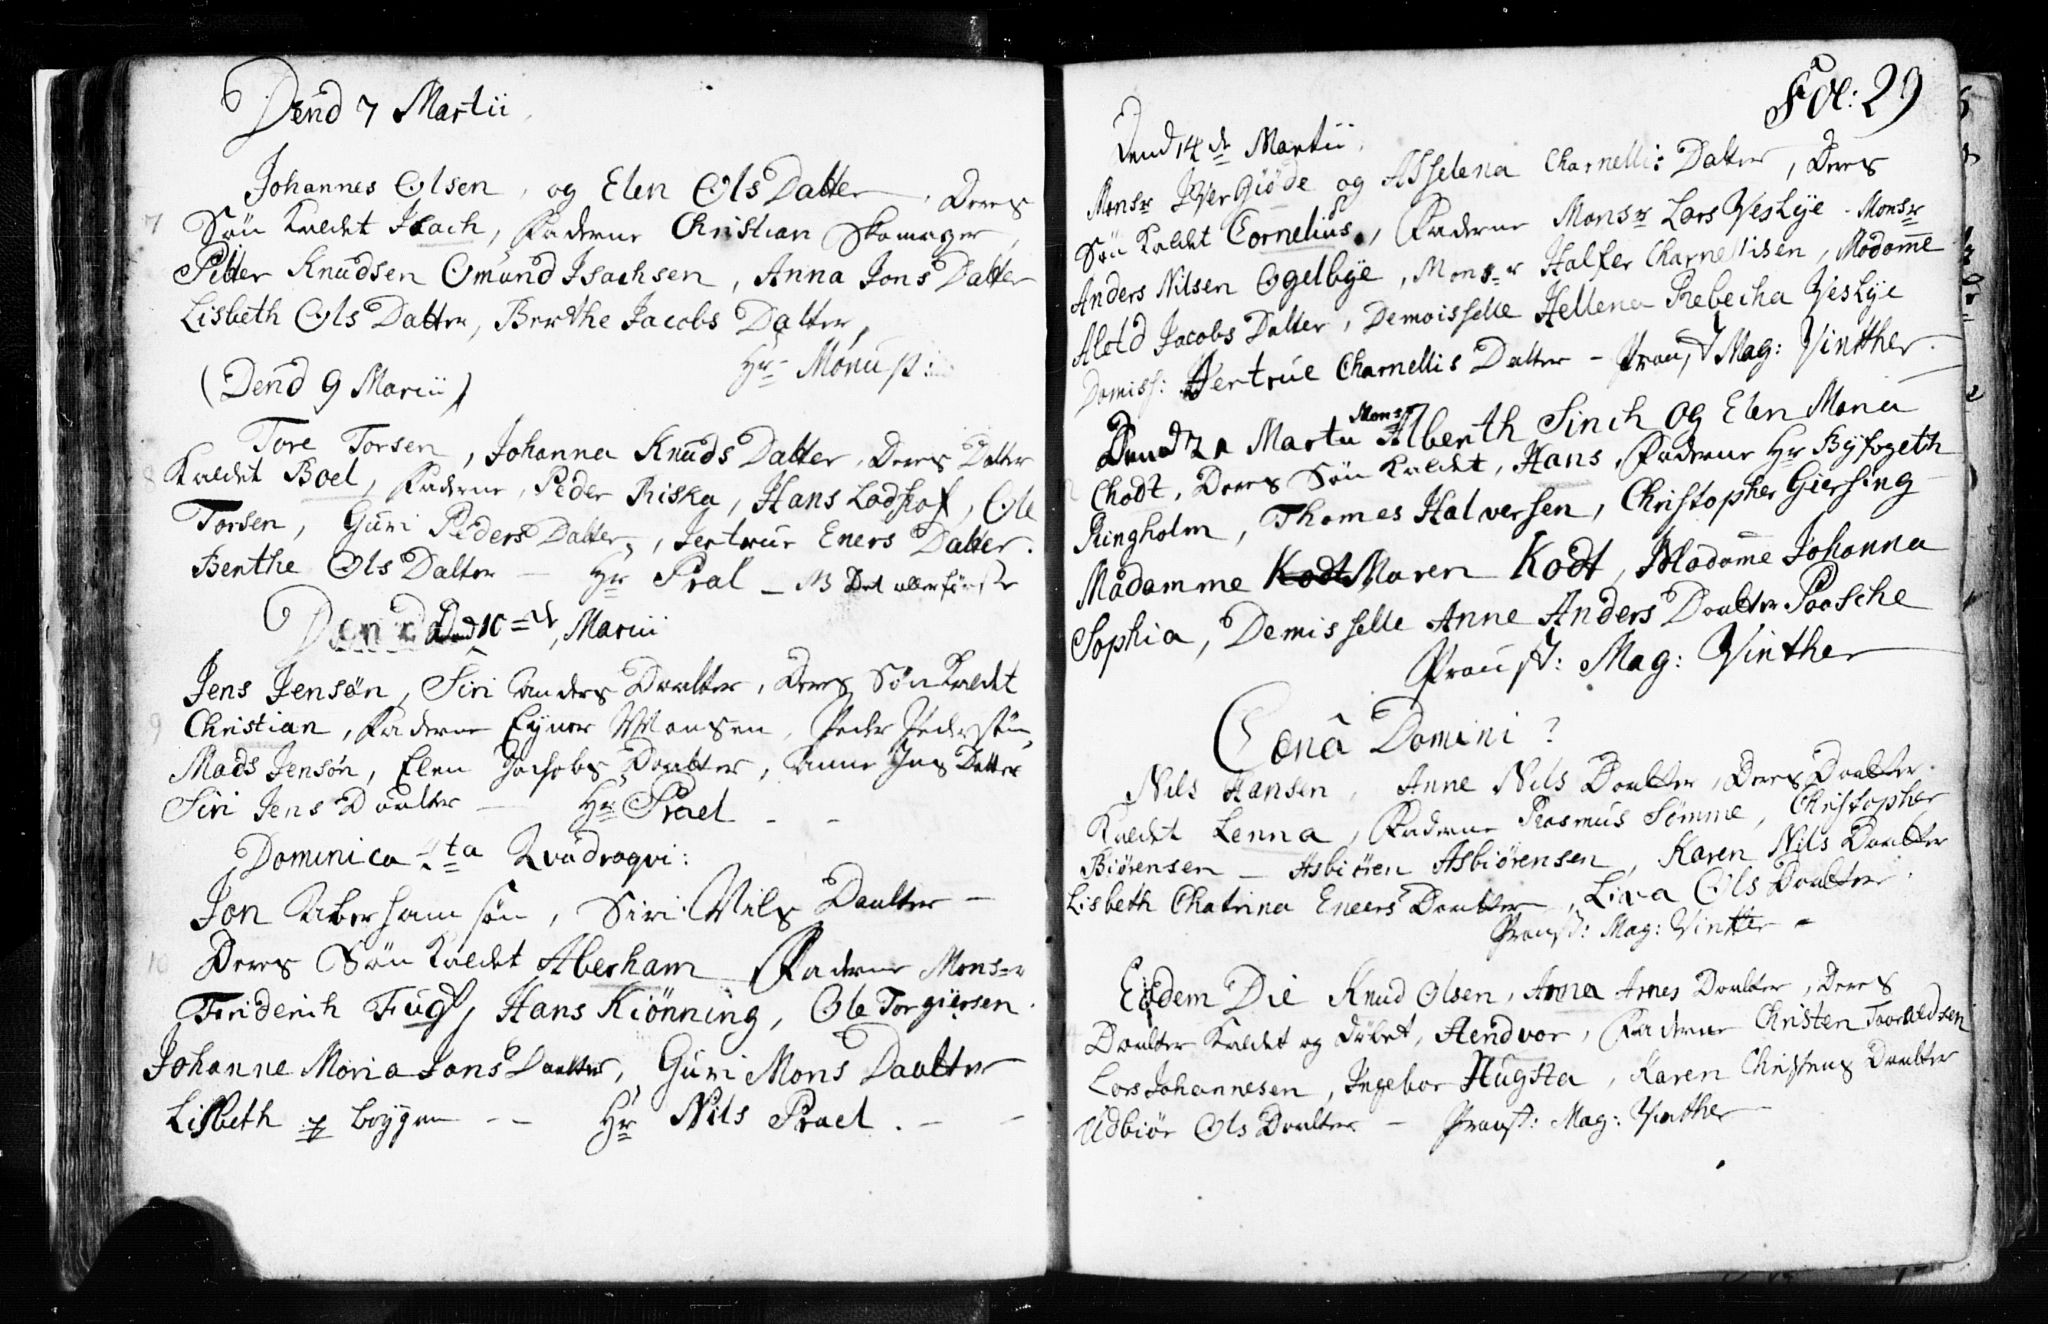 Dend 7 Martii
Johannes Olsen, og Elen Ols Datter, Deres
7 Søn Kaldet Isach, Faderne Christian Skomager,
Petter Knudsen Omund Isachsen, Anna Jons Datter
Lisbeth Ols Datter, Berthe Jacobs Datter,
Hr Morup
(Dend 9 Marii)
Tore Torsen, Johanna Knuds Datter, Deres Datter
8 Kaldet Boel, Faderne, Peder Riska, Hans Lodhof, Ole
Torsen, Guri Peders Datter, Jertrue Eners Datter.
Benthe Ols Datter — Hr Pral — NB Det allerførste
Dend 10 Marii
Jens Jensøn, Siri Anders Daatter, Deres Søn Kaldet
9 Christian, Faderne Eyner Monsen, Peder Pedersøn,
Mads Jensøn, Elen Jachobs Daatter, Anne Jens Datter
Siri Jens Daatter — Hr Prael — —
Dominica 4ta Qvadragi:
Jon Aberhamsøn, Siri Nils Daatter —
10 Deres Søn Kaldet Aberham Faderne Monsr
Friderich Fugl, Hans Kiønning, Ole Torgiersen.
Johanne Maria Jans Daatter, Guri Mons Daatter
Lisbeth Boygen — — Hr Nils Prael. — —
Fol: 29
Dend 14de Martii.
Monsr Iver Giøde og Asselena Charnellis Datter, Deres
Søn Kaldet Cornelius, Faderne Monsr Lars Veslye Monsr
Anders Nilsen Ogelbye, Monsr Halfer Charnellisen, Madame
Alotd Jacobs Datter, Demoisselle Hellena Rebecha Veslye
Domiss: Hertrue Charnellis Datter — Proust Mag: Vinther.
Dend 21 Martii Monsr Alberth Sinch og Elen Maria
Chodt, Deres Søn Kaldet, Hans, Faderne Hr Byfogeth
Ringholm, Thomes Halversen, Christopher Giersing
Madamme Kodt Maren Kodt, Madame Johanna
Sophia, Demisselle Anne Anders Daatter Paasche
Proust: Mag: Vinther
Cænâ Domini?
Nils Hansen, Anne Nils Daatter, Deres Daatter.
Kaldet Lenna, Faderne Rasmus Sømme, Christopher
Biørensen — Asbiøren Asbiørensen, Karen Nils Daatter
Lisbeth Chatrina Eneers Daatter, Lisa Ols Daatter.
Proust: Mag: Vintter —
Eodem Die Knud Olsen, Anna Arnes Daatter, Deres
Daatter Kaldet og døbet, Aendvor, Faderne Christen Taaraldsen
Lars Johannesen, Ingebor Hugsta, Karen Christens Daatter
Udbiør Ols Daatter — Proust: Mag: Vinther